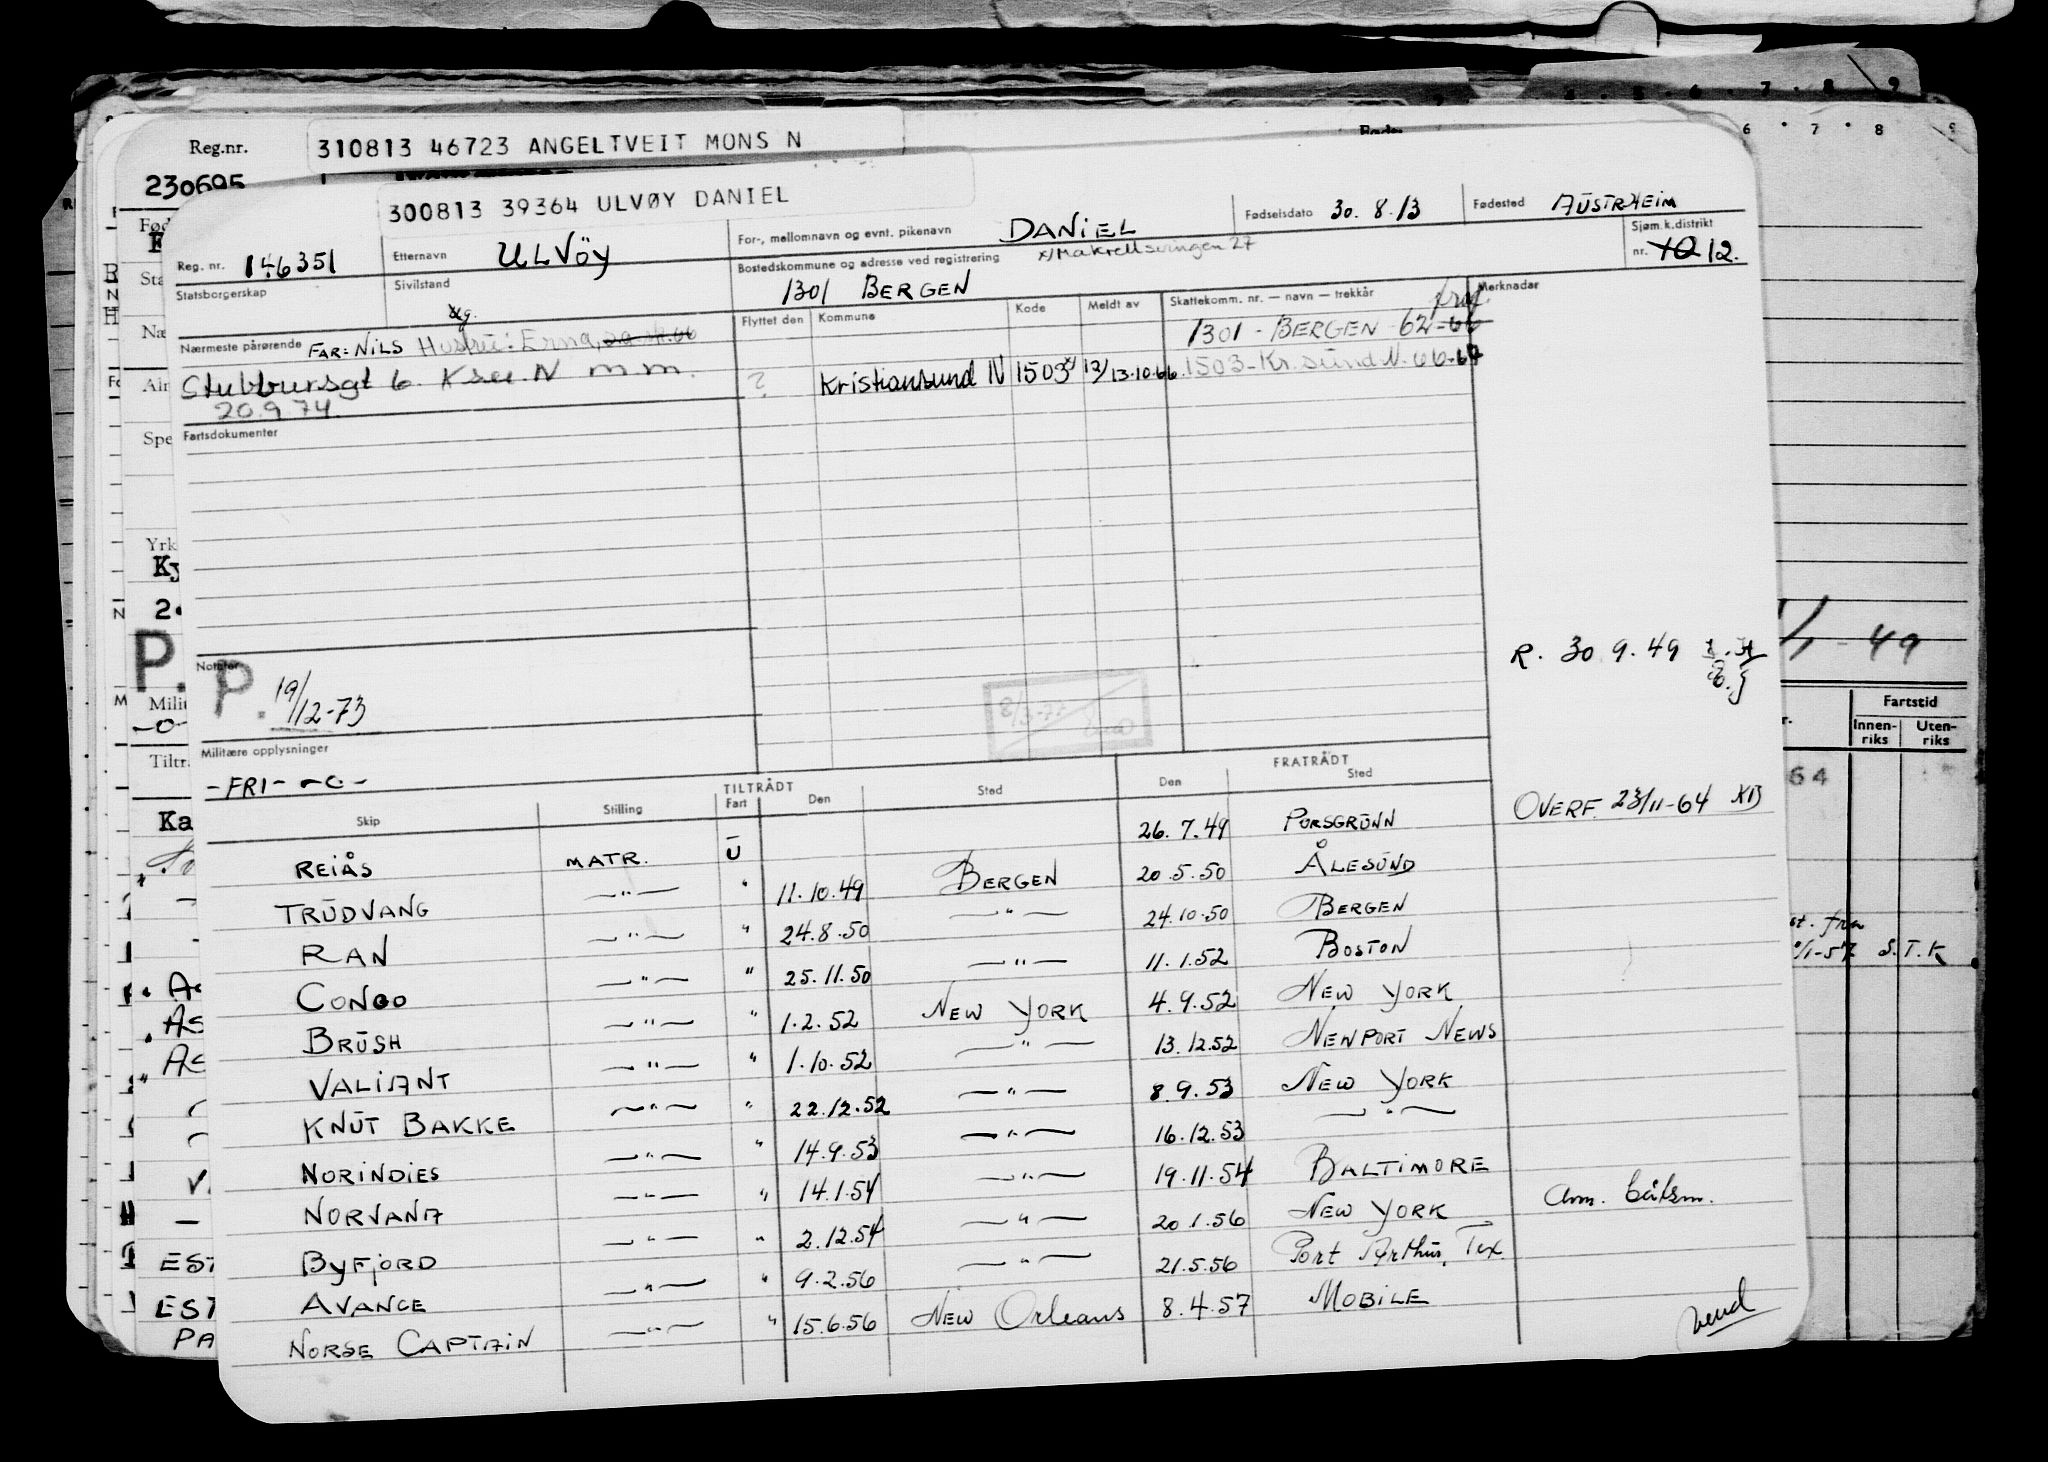 Reg.nr.
310813 46723 ANGELTVEIT MONS N
230695
300813 39364 ULVØY DANIEL
Reg. nr. 146351
Etternavn ULVÖY
For-, mellomnavn og evnt. pikenavn DANIEL
Fødselsdato 30.8.13
Fødested AUSTRHEIM
Statsborgerskap
Sivilstand
Ug.
Bostedskommune og adresse ved registrering x/Makrellsvingen 27
1301 BERGEN
Sjøm.k.distrikt
nr. 10 12.
Nærmeste pårørende FAR: NILS Hustru: Erna,
Stubbursgt 6. Ksu. N m m.
20.9.74.
Flyttet den Kommune Kode Meldt av Skattekomm. nr. — navn — trekkår Merknader
1301 - BERGEN 62-66
? Kristiansund N 1503 x) 13/13.10.66. 1503-Kr.sund N. 66-67
Fartsdokumenter
Notater
P. 19/12-73
R. 30.9.49
Militære opplysninger
-FRI- -o-
OVERF. 23/11-64
TILTRÅDT FRATRÅDT
Skip Stilling Fart Den Sted Den Sted
REIÅS MATR. U — 26.7.49 PORSGRUNN
TRUDVANG —"— " 11.10.49 BERGEN 20.5.50 ÅLESUND
RAN —"— " 24.8.50 —"— 24.10.50 BERGEN
CONGO —"— " 25.11.50 —"— 11.1.52 BOSTON
BRUSH —"— " 1.2.52 NEW YORK 4.9.52 NEW YORK
VALIANT —"— " 1.10.52 —"— 13.12.52 NEWPORT NEWS
KNUT BAKKE —"— " 22.12.52 —"— 8.9.53 NEW YORK
NORINDIES —"— " 14.9.53 —"— 16.12.53 —"—
NORVANA —"— " 14.1.54 —"— 19.11.54 BALTIMORE
BYFJORD —"— " 2.12.54 —"— 20.1.56 NEW YORK Anm. båtsm.
AVANCE —"— " 9.2.56 —"— 21.5.56 Port Arthur, Tex.
NORSE CAPTAIN —"— " 15.6.56 NEW Orleans 8.4.57 MOBILE
vend
1/1-49
Fartstid
Innen-riks Uten-riks
64
S.T.K